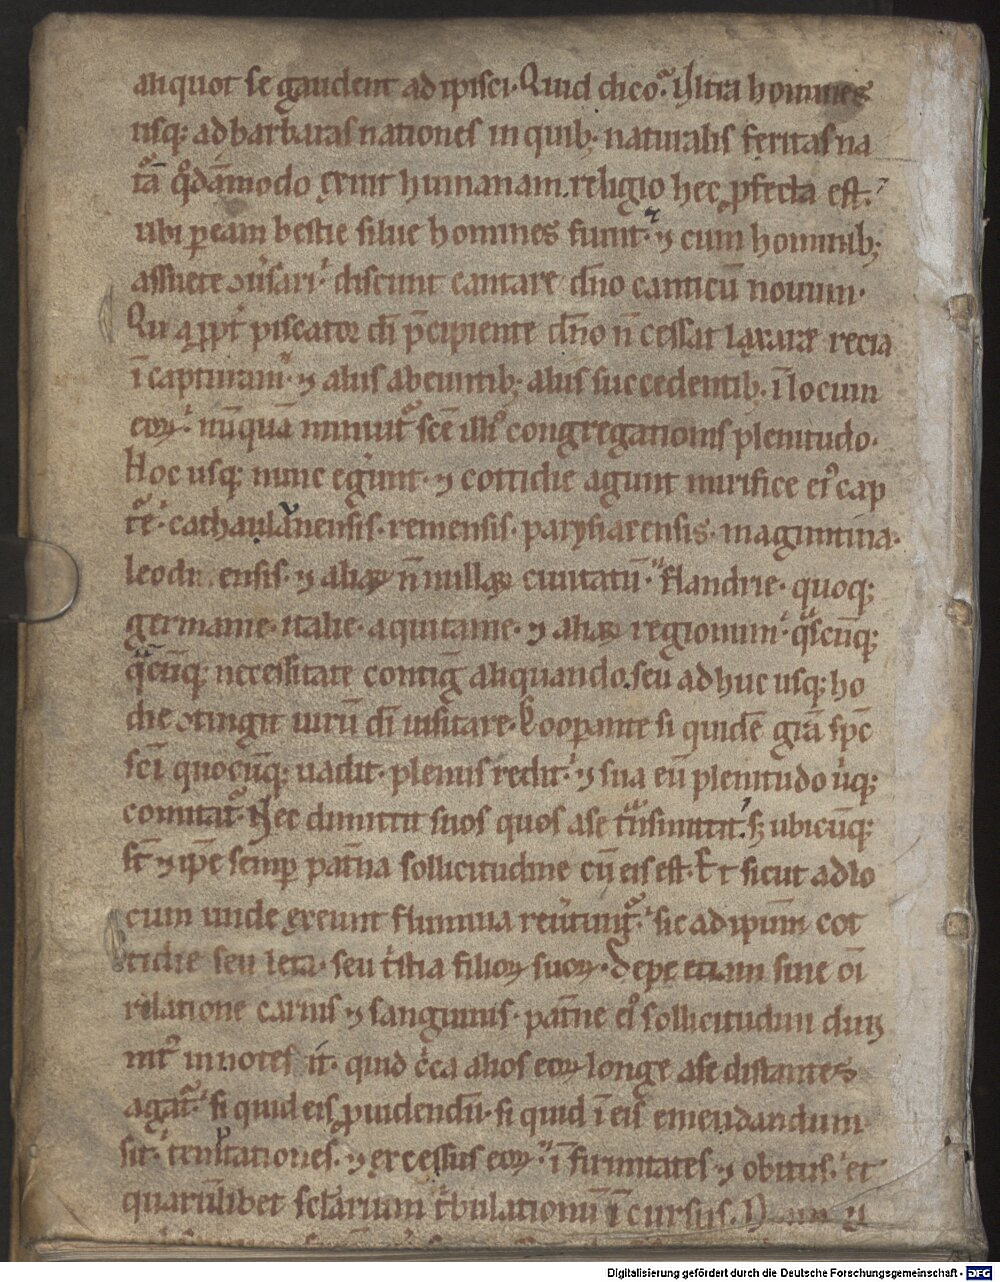 aliquot se gaudent adipisci. Quid dico? Ultra homines
usq; ad barbaras nationes in quib; naturalis feritas na
tā q̊dāmodo exuit humanam. religio hec ꝑfecta est.
ubi ꝑ eam bestie silue homines fiunt. ⁊ cum hominib;
assuete ɔu̓sari. discunt cantare dn̄o canticū nouum.
Qua ꝓpt̓ piscator dī p̄cipiente dn̄o n̄ cessat laxare recia
ī capturam. ⁊ aliis abeuntib; aliis succedentib. ī locum
eoꝝ. nūquā minuit᷑ scē illi᷒ congregationis plenitudo.
Hoc usq; nunc eger̄unt. ⁊ cottidie agunt mirifice ei᷒ cap
tē. cathaulanensis. remensis. parysiacensis. maguntina.
leodi ensis. ⁊ aliaꝝ n̄nullaꝝ ciuitatū. flandrie. quoq;
germanie. italie. aquitanie. ⁊ aliaꝝ regionum. q̄scūq;
q̄cūq; necessitate contiḡ aliquando. seu adhuc usq; ho
die ɔtingit uirū dī uisitare. Cooꝑante si quidē gr̄a spc̄
scī quocūq; uadit. plenus redit. ⁊ sua eū plenitudo ubiq;
comitat᷑. Nec dimittit suos quos a se tͣnsmittit. s; ubicūq;
st̄ ⁊ ip̄e semꝑ pat̄na sollicitudine cū eis est. Et sicut ad lo
cum unde exeunt flumina reu̓tunt᷑. sic ad ipsum cot
tidie seu leta. seu t̓stia filioꝝ suoꝝ. Sepe etiam sine oī
relatione carnis ⁊ sanguinis. pat̄ne ei᷒ sollicitudini
int᷒ innotescit. quid c̓ca alios eoꝝ longe a se distantes
agat᷑. si quid eis ꝓuidendū. si quid ī eis emendandum
sit. temptationes. ⁊ excessus eoꝝ. īfirmitates ⁊ obitus. et
quarūlibet sclarium t̓bulationū īcursus. Nam